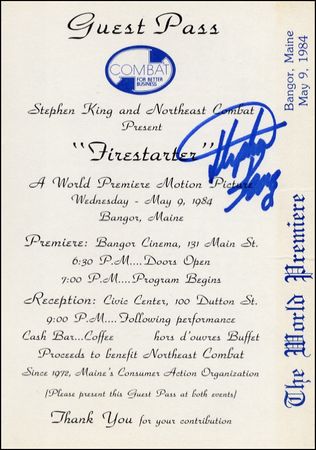 Guest Pass
COMBAT
FOR BETTER
BUSINESS
Stephen King and Northeast Combat
Present
"Firestarter"
A World Premiere Motion Picture
Wednesday - May 9, 1984
Bangor, Maine
Premiere: Bangor Cinema, 131 Main St.
6:30 P.M....Doors Open
7:00 P.M....Program Begins
Reception: Civic Center, 100 Dutton St.
9:00 P.M....Following performance
Cash Bar...Coffee hors d'ouvres Buffet
Proceeds to benefit Northeast Combat
Since 1972, Maine's Consumer Action Organization
(Please present this Guest Pass at both events)
Thank You for your contribution
Stephen King
The World Premiere
Bangor, Maine
May 9, 1984